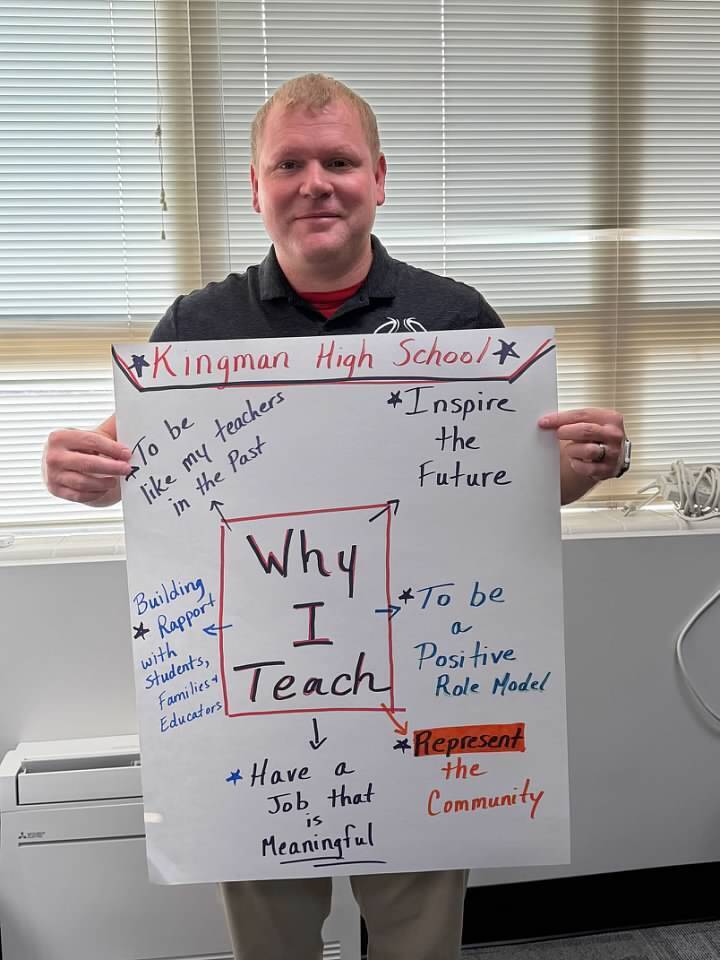 Kingman High School
To be
like my teachers
in the Past
Inspire
the
Future
Why
I
Teach
Building
Rapport
with
Students,
Families +
Educators
To be
a
Positive
Role Model
Represent
the
Community
Have a
Job that
is
Meaningful
MITSUBISHI